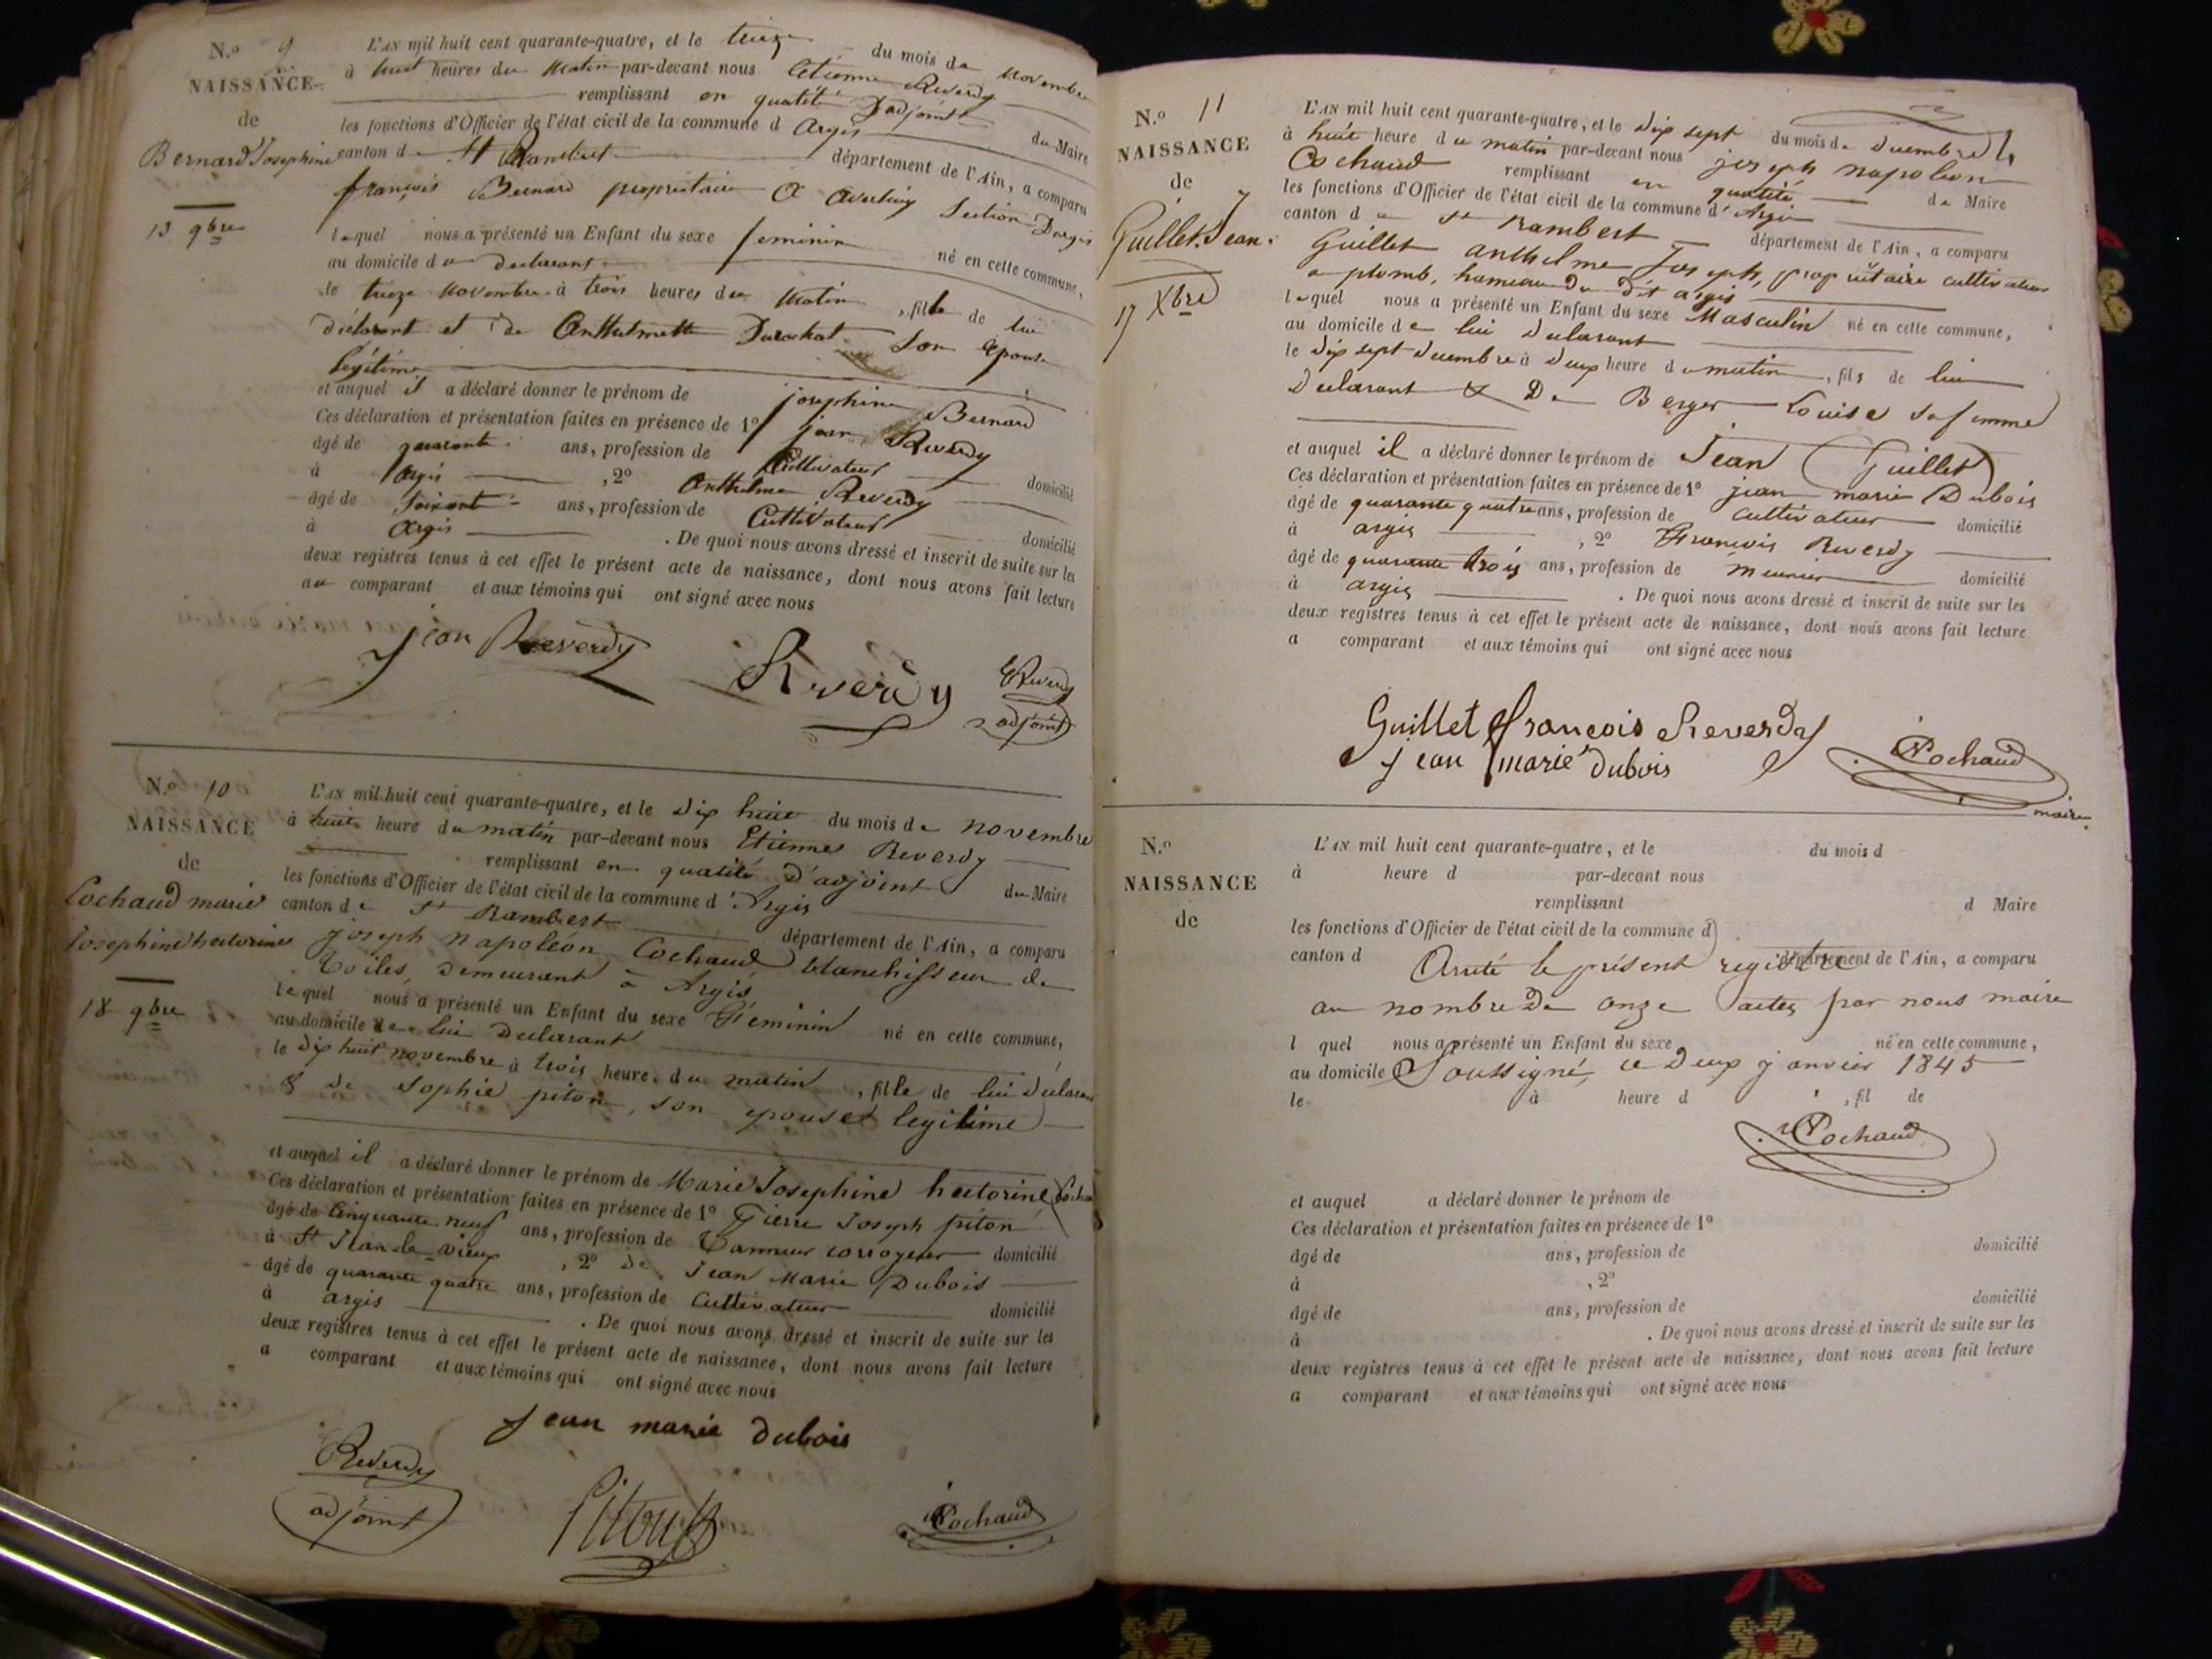 N.º 9
NAISSANCE
de
Bernard Josephine
13 9bre
L'AN mil huit cent quarante-quatre, et le treize du mois de Novembre
à huit heures du Matin par-devant nous Etienne Reverdy
remplissant en qualité D'adjoint du Maire
les fonctions d'Officier de l'état civil de la commune d Argis
canton de St Rambert département de l'Ain, a comparu
françois Bernard propriétaire a Section Dargis
lequel nous a présenté un Enfant du sexe feminin né en cette commune,
au domicile du declarant
le treize Novembre à trois heures du Matin, fille de lui
déclarant et de Anthelmette son epouse
légitime
et auquel il a déclaré donner le prénom de josephine Bernard
Ces déclaration et présentation faites en présence de 1º jean Reverdy
âgé de quarante ans, profession de Cultivateur domicilié
à Argis, 2º Anthelme Reverdy
âgé de soixante ans, profession de Cultivateur domicilié
à Argis. De quoi nous avons dressé et inscrit de suite sur les
deux registres tenus à cet effet le présent acte de naissance, dont nous avons fait lecture
au comparant et aux témoins qui ont signé avec nous
jean Reverdy Reverdy E Reverdy
adjoint
N.º 10
NAISSANCE
de
Cochaud marie
Josephine hectorine
18 9bre
L'AN mil huit cent quarante-quatre, et le dix huit du mois de novembre
à huit heure du matin par-devant nous Etienne Reverdy
remplissant en qualité d'adjoint du Maire
les fonctions d'Officier de l'état civil de la commune d'Argis
canton de St Rambert département de l'Ain, a comparu
joseph napoléon Cochaud blanchisseur de
toiles, demeurant à Argis
lequel nous a présenté un Enfant du sexe Féminin né en cette commune,
au domicile de lui Declarant
le dix huit novembre à trois heure du matin, fille de lui déclarant
& de Sophie piton, son epouse legitime
et auquel il a déclaré donner le prénom de Marie Josephine hectorine Cochaud
Ces déclaration et présentation faites en présence de 1º Pierre Joseph piton
âgé de cinquante neuf ans, profession de Tanneur corroyeur domicilié
à St Jean le vieux, 2º de Jean Marie Dubois
âgé de quarante quatre ans, profession de Cultivateur domicilié
à argis. De quoi nous avons dressé et inscrit de suite sur les
deux registres tenus à cet effet le présent acte de naissance, dont nous avons fait lecture
a comparant et aux témoins qui ont signé avec nous
jean marie dubois
Reverdy
adjoint Piton Cochaud
N.º 11
NAISSANCE
de
Guillet Jean
17 Xbre
L'AN mil huit cent quarante-quatre, et le dix sept du mois de decembre
à huit heure du matin par-devant nous joseph napoleon
Cochaud remplissant en qualité de Maire
les fonctions d'Officier de l'état civil de la commune d'Argis
canton de St Rambert département de l'Ain, a comparu
Guillet anthelme Joseph, propriétaire cultivateur
a plomb, hameau du dit argis
lequel nous a présenté un Enfant du sexe Masculin né en cette commune,
au domicile de lui declarant
le dix sept decembre à deux heure du matin, fils de lui
Declarant & De Berger Louise sa femme
et auquel il a déclaré donner le prénom de Jean Guillet
Ces déclaration et présentation faites en présence de 1º jean marie Dubois
âgé de quarante quatre ans, profession de cultivateur domicilié
à argis, 2º François Reverdy
âgé de quarante trois ans, profession de meunier domicilié
à argis. De quoi nous avons dressé et inscrit de suite sur les
deux registres tenus à cet effet le présent acte de naissance, dont nous avons fait lecture
a comparant et aux témoins qui ont signé avec nous
Guillet françois Reverdy
jean marie dubois Cochaud
maire
N.º
NAISSANCE
de
L'AN mil huit cent quarante-quatre, et le du mois d
à heure d par-devant nous
remplissant d Maire
les fonctions d'Officier de l'état civil de la commune d
canton d département de l'Ain, a comparu
Arreté le présent registre
au nombre de onze actes par nous maire
l quel nous a présenté un Enfant du sexe né en cette commune,
au domicile Soussigné, ce deux janvier 1845
le à heure d, fil de
Cochaud
et auquel a déclaré donner le prénom de
Ces déclaration et présentation faites en présence de 1º
âgé de ans, profession de domicilié
à, 2º
âgé de ans, profession de domicilié
à. De quoi nous avons dressé et inscrit de suite sur les
deux registres tenus à cet effet le présent acte de naissance, dont nous avons fait lecture
a comparant et aux témoins qui ont signé avec nous